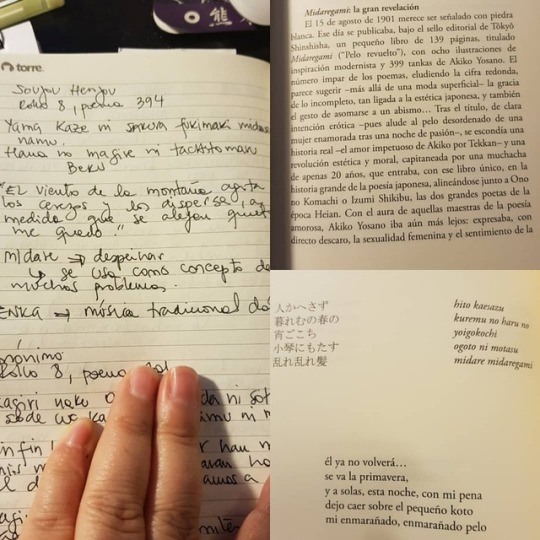 熊
torre.
Soujou Henjou
Rollo 8, poema 394
Yama Kaze ni sakura fukimaki
namu.
Hana no magire ni tachitomaru
Beku
"El viento de la montaña agita
los cerezos y los dispersa, a
medida que se alejan
me quedo."
Midare → despeinar
↳ se usa como concepto de
muchos problemas.
ENKA → música tradicional
Rollo 8, poema
Midaregami: la gran revelación
El 15 de agosto de 1901 merece ser señalado con piedra
blanca. Ese día se publicaba, bajo el sello editorial de Tōkyō
Shinshisha, un pequeño libro de 139 páginas, titulado
Midaregami ("Pelo revuelto"), con ocho ilustraciones de
inspiración modernista y 399 tankas de Akiko Yosano. El
número impar de los poemas, eludiendo la cifra redonda,
parece sugerir –más allá de una moda superficial– la gracia
de lo incompleto, tan ligada a la estética japonesa, y también
el gesto de asomarse a un abismo… Tras el título, de clara
intención erótica –pues alude al pelo desordenado de una
mujer enamorada tras una noche de pasión–, se escondía una
historia real –el amor impetuoso de Akiko por Tekkan– y una
revolución estética y moral, capitaneada por una muchacha
de apenas 20 años, que entraba, con ese libro único, en la
historia grande de la poesía japonesa, alineándose junto a Ono
no Komachi o Izumi Shikibu, las dos grandes poetas de la
época Heian. Con el aura de aquellas maestras de la poesía
amorosa, Akiko Yosano iba aún más lejos: expresaba, con
directo descaro, la sexualidad femenina y el sentimiento de la
人かへさず
暮れむの春の
宵ごこち
小琴にもたす
乱れ乱れ髪
hito kaesazu
kuremu no haru no
yoigokochi
ogoto ni motasu
midare midaregami
él ya no volverá…
se va la primavera,
y a solas, esta noche, con mi pena
dejo caer sobre el pequeño koto
mi enmarañado, enmarañado pelo